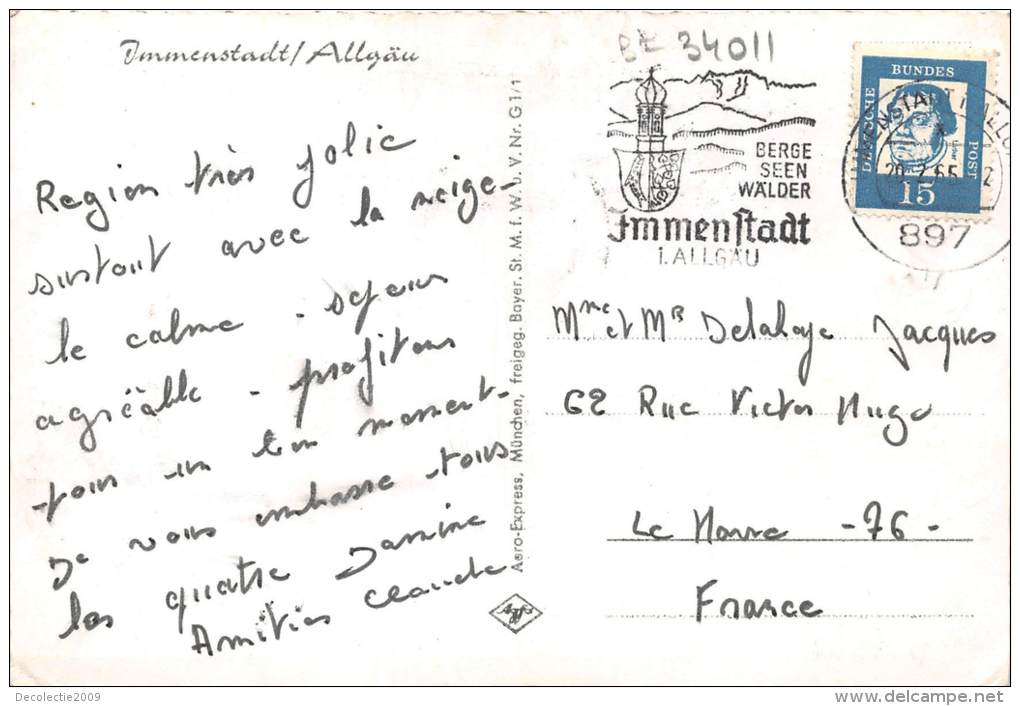 Immenstadt/Allgäu
BZ 34011
Region très jolie
surtout avec la neige-
le calme - séjour
agréable - profitons
pour un bon moment-
Je vous embrasse tous
les quatre Jannine
Amitiés Claude
Aero-Express, München, freigeg. Bayer. St. M. f. W. u. V. Nr. G 1/1
BERGE
SEEN
WÄLDER
Immenstadt
i. ALLGÄU
DEUTSCHE
BUNDES
POST
Luther
15
20.2.65
897
Mme et Mr Delahaye Jacques
62 Rue Victor Hugo
Le Havre -76-
France
Agfa
Decolectie2009
www.delcampe.net